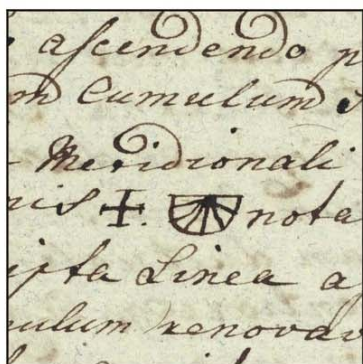 ascendendo p
m Cumulum
Meridionali
nota
ipta Linea a
ulum renova